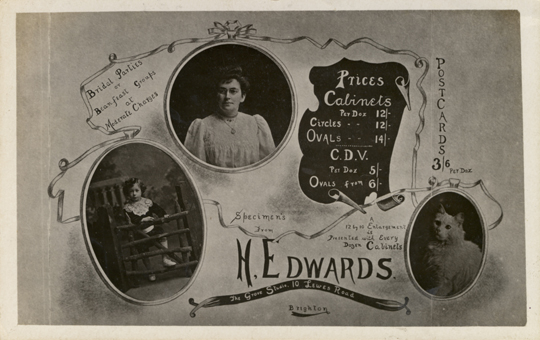 Bridal Parties
or
Beanfeast Groups
at
Moderate Charges
PRICES
Cabinets
PER DOZ 12/-
CIRCLES - - 12/-
OVALS - - 14/-
C.D.V.
PER DOZ 5/-
OVALS FROM 6/-
POSTCARDS
3/6
PER DOZ
Specimens
From
A
12 by 10 Enlargement
is
Presented with Every
Dozen Cabinets
H. EDWARDS.
The Grove Studio, 10 Lewes Road
Brighton